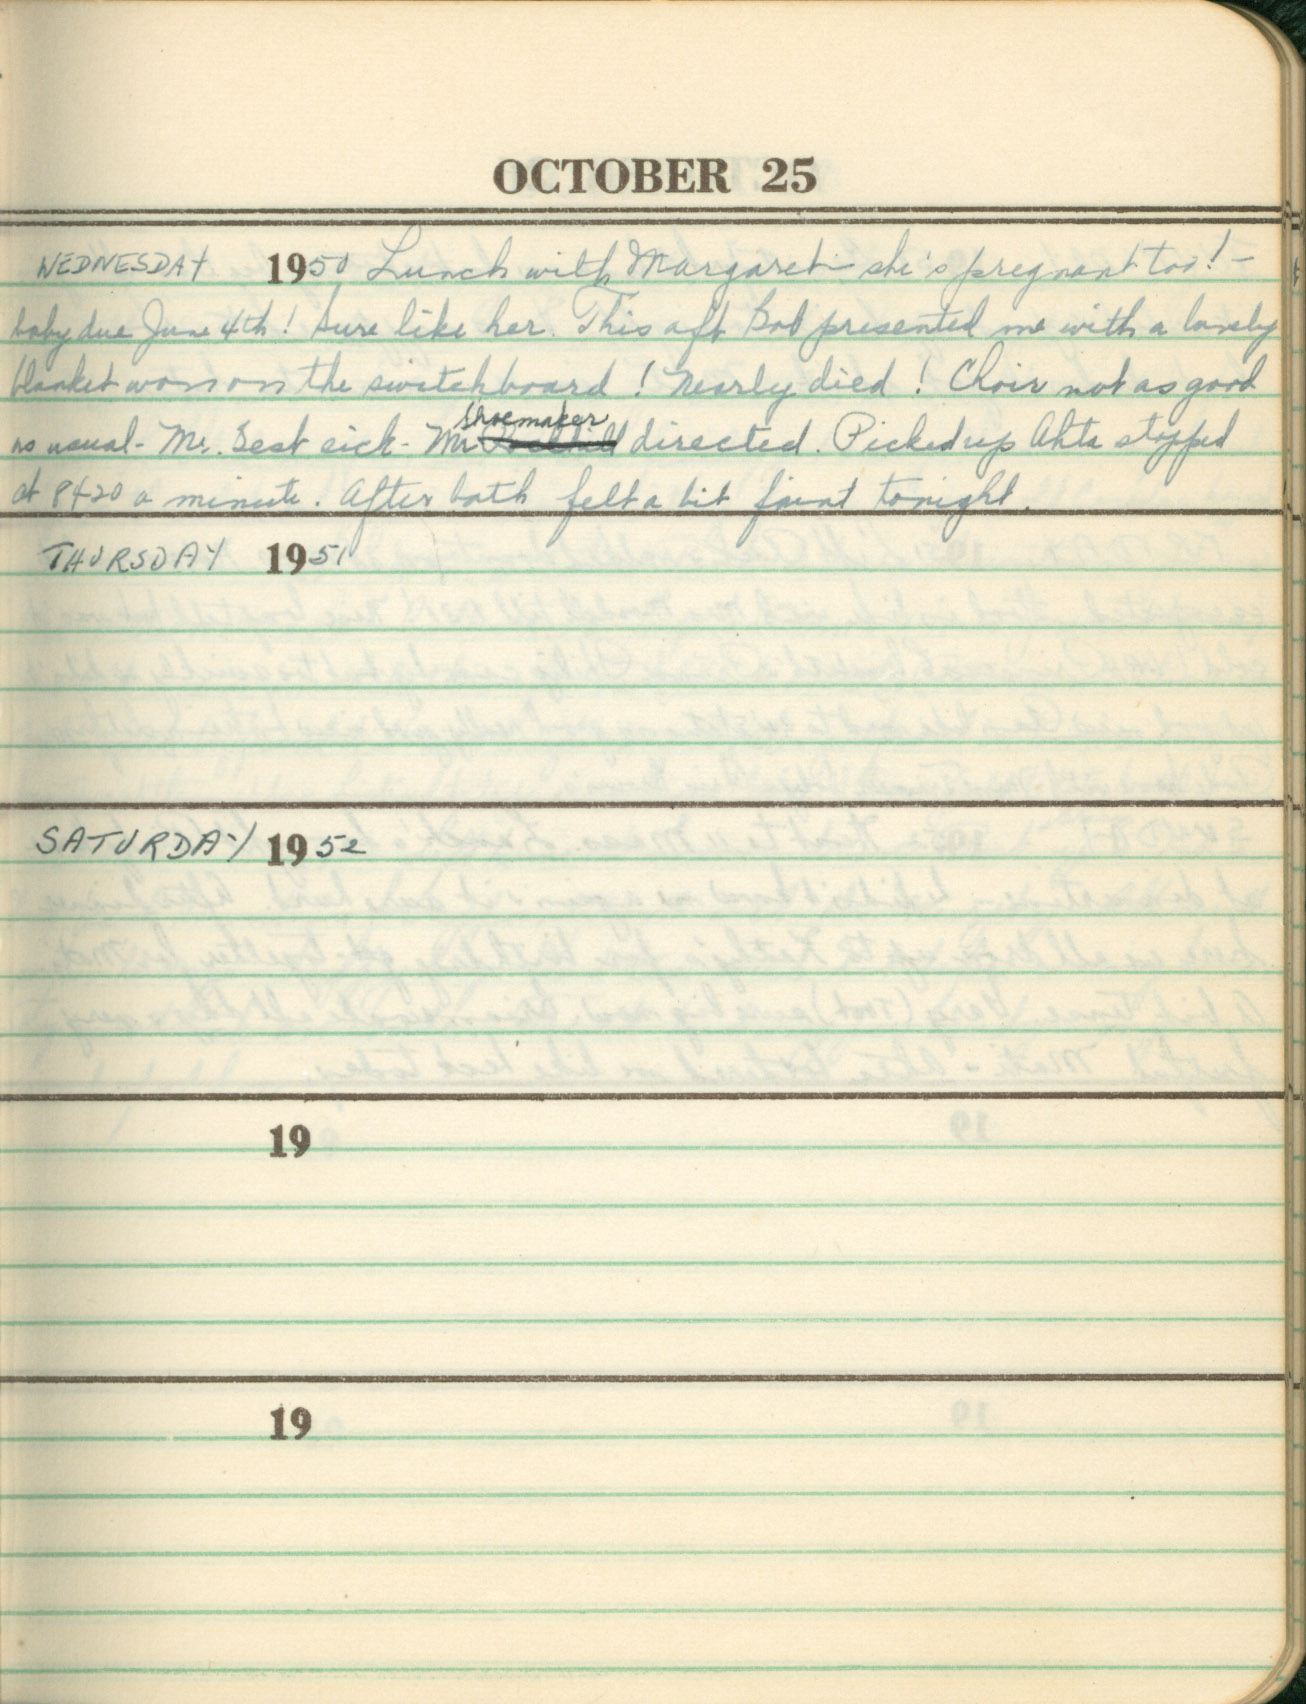 OCTOBER 25
WEDNESDAY 1950 Lunch with Margaret - she's pregnant too! -
baby due June 4th! Sure like her. This aft Bob presented me with a lovely
blanket won on the switchboard! Nearly died! Choir not as good
as usual - Mr. Best sick - Mr. Shoemaker directed. Picked up Ahta stopped
at 8420 a minute. After bath felt a bit faint tonight.
THURSDAY 1951
SATURDAY 1952
19
19